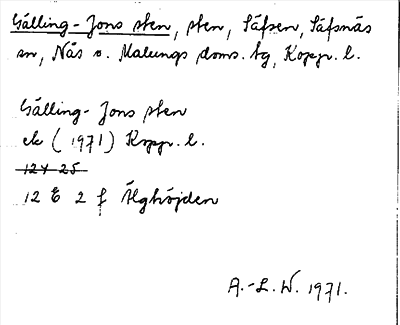 Gålling-Jons sten, sten, Säfsen, Säfsnäs
sn, Nås o. Malungs doms. tg, Koppr. l.
Gålling-Jons sten
ek (1971) Koppr. l.
12Y 25
12 E 2 f Älghöjden
A.-L. W. 1971.